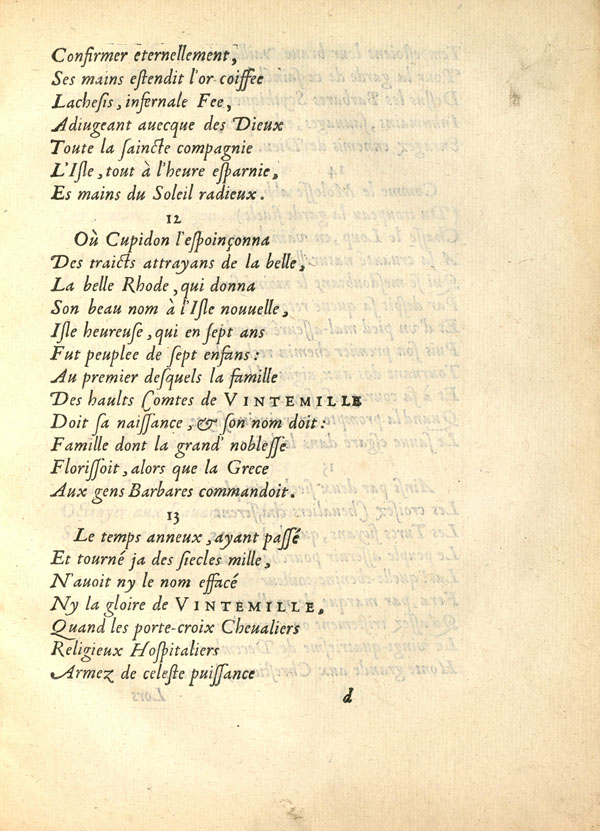 Confirmer eternellement,
Ses mains eſtendit l'or coiffee
Lacheſis, infernale Fee,
Adiugeant auecque des Dieux
Toute la ſaincte compagnie
L'Iſle, tout à l'heure eſparnie,
Es mains du Soleil radieux.
12
Où Cupidon l'eſpoinçonna
Des traicts attrayans de la belle,
La belle Rhode, qui donna
Son beau nom à l'Iſle nouuelle,
Iſle heureuſe, qui en ſept ans
Fut peuplee de ſept enfans:
Au premier deſquels la famille
Des haults Comtes de VINTEMILLE
Doit ſa naiſſance, & ſon nom doit:
Famille dont la grand' nobleſſe
Floriſſoit, alors que la Grece
Aux gens Barbares commandoit.
13
Le temps anneux, ayant paſſé
Et tourné ja des ſiecles mille,
N'auoit ny le nom effacé
Ny la gloire de VINTEMILLE,
Quand les porte-croix Cheualiers
Religieux Hoſpitaliers
Armez de celeſte puiſſance
d